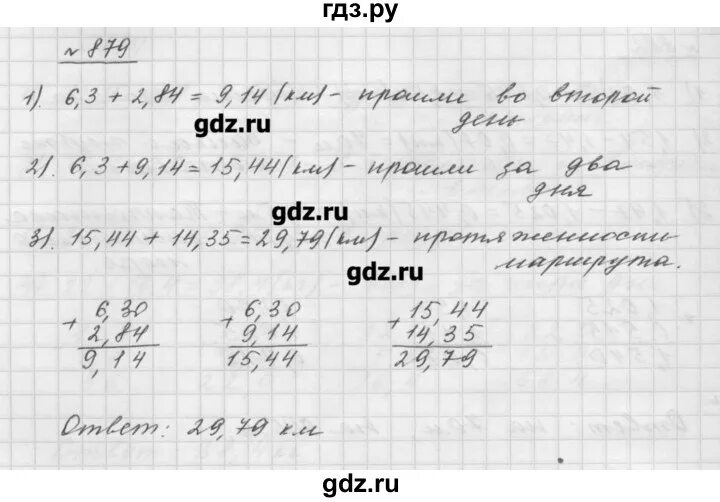 гдз.ру
№ 879
1). 6,3 + 2,84 = 9,14 (км) - прошли во второй
день
gdz.ru
2). 6,3 + 9,14 = 15,44 (км) - прошли за два
дня
gdz.ru
3). 15,44 + 14,35 = 29,79 (км) - протяженность
маршрута.
gdz.ru
+ 6,30
2,84
9,14
+ 6,30
9,14
15,44
+ 15,44
14,35
29,79
Ответ: 29,79 км
gdz.ru